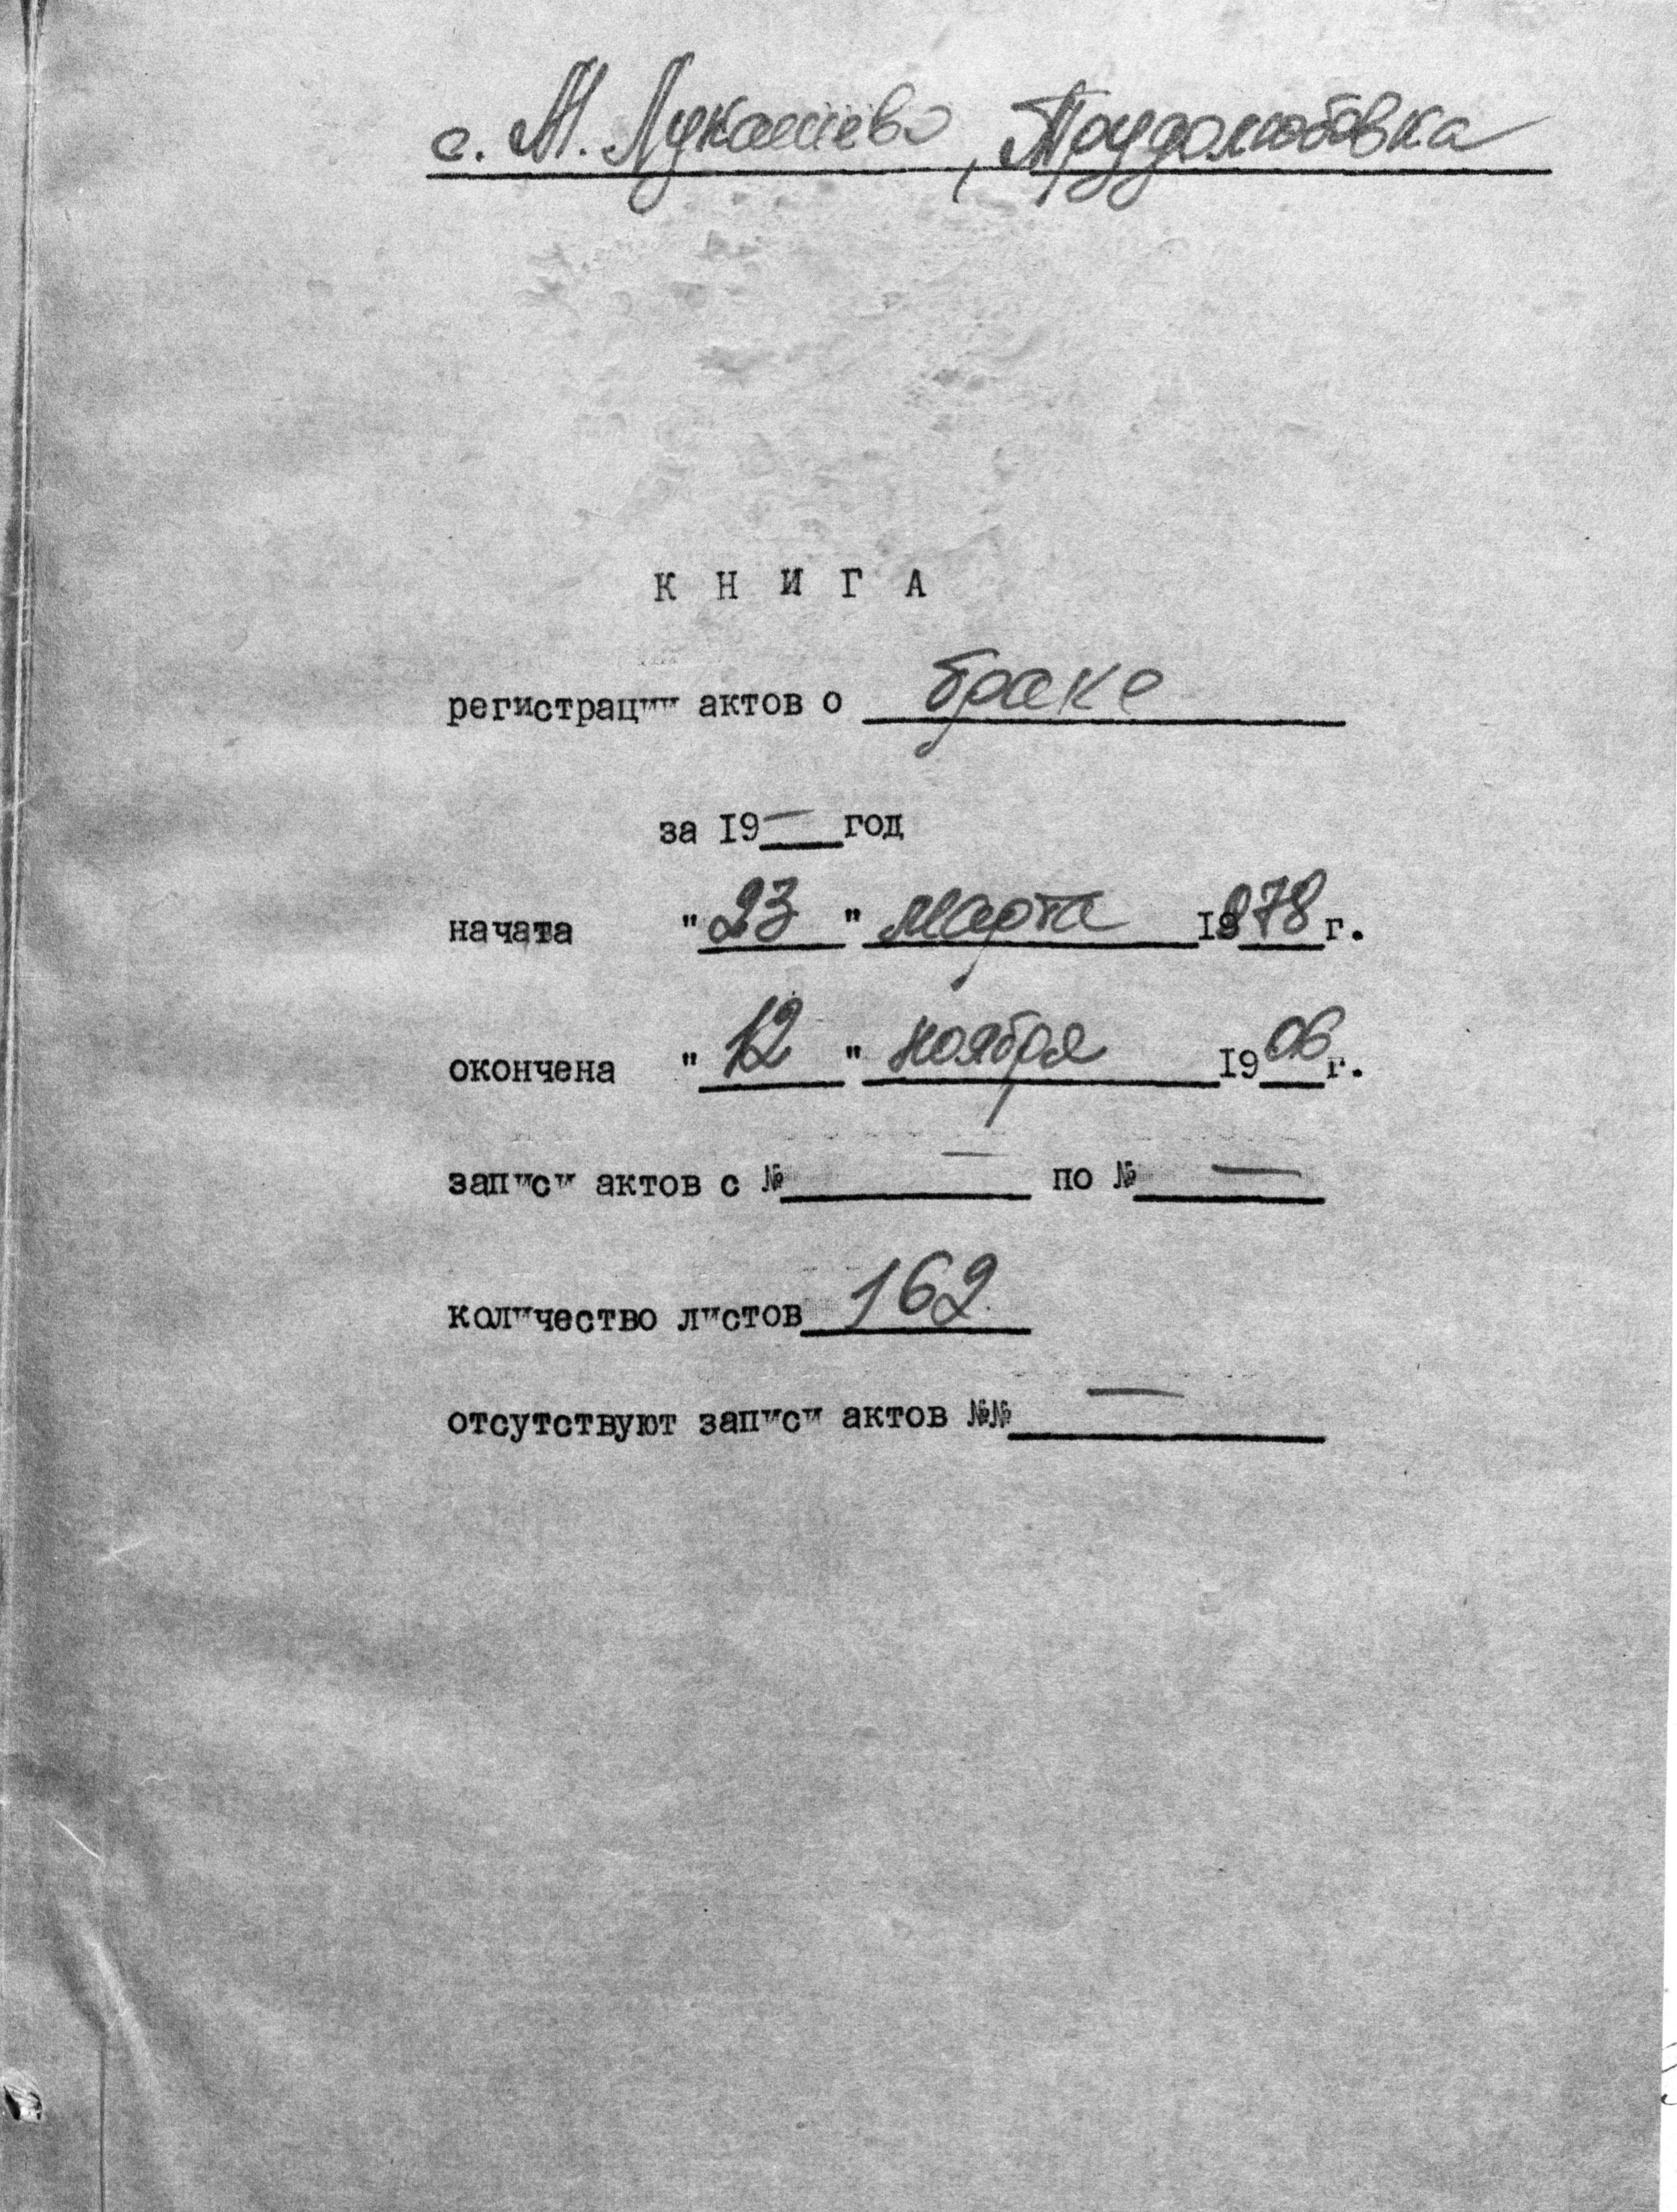 с. М. Лукашево, Трудолюбовка
КНИГА
регистрации актов о браке
за 19— год
начата "23" марта 1878 г.
окончена "12" ноября 1906 г.
записи актов с № — по № —
количество листов 162
отсутствуют записи актов №№ —